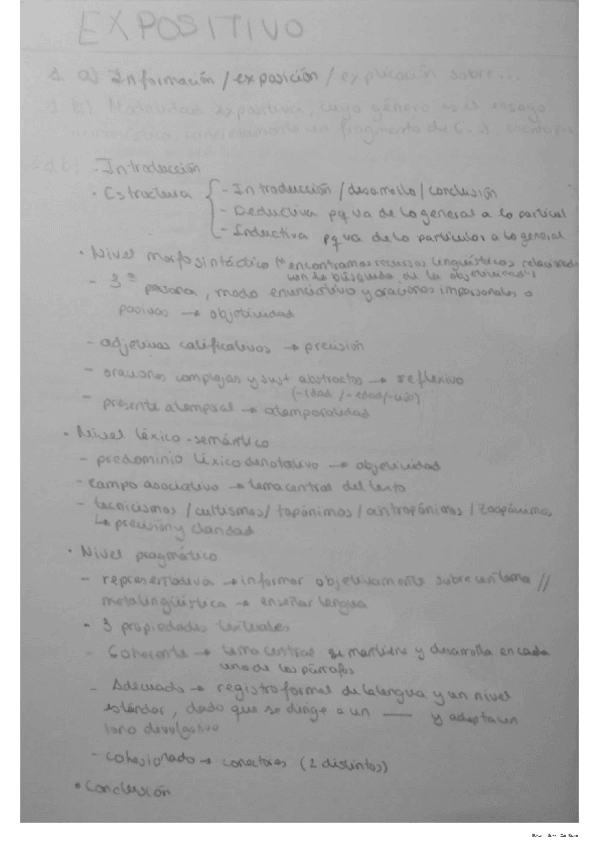 EXPOSITIVO
1. a) Información/exposición/explicación sobre...
1. b) Modalidad expositiva, cuyo género es el ensayo
concretamente un fragmento de
1.b) · Introducción
· Estructura - Introducción/desarrollo/conclusión
- Deductiva pq va de lo general a lo particul
- Inductiva pq va de lo particular a lo general
· Nivel morfosintáctico ("encontramos recursos lingüísticos relacionados
con la búsqueda de la objetividad")
- 3ª persona, modo enunciativo y oraciones impersonales o
pasivas → objetividad
- adjetivos calificativos → precisión
- oraciones complejas y sust abstractos → reflexivo
(-idad / -edad/
- presente atemporal → atemporalidad
· Nivel léxico-semántico
- predominio léxico denotativo → objetividad
- campo asociativo → tema central del texto
- tecnicismos / cultismos / topónimos / antropónimos / zoopónimos
↳ precisión y claridad
· Nivel pragmático
- representativa → informar objetivamente sobre un tema //
metalingüística → enseñar lengua
- 3 propiedades textuales
- Coherente → tema central se mantiene y desarrolla en cada
uno de los párrafos
- Adecuado → registro formal de la lengua y un nivel
estándar, dado que se dirige a un —— y adopta un
tono divulgativo
- cohesionado → conectores (2 distintos)
· Conclusión